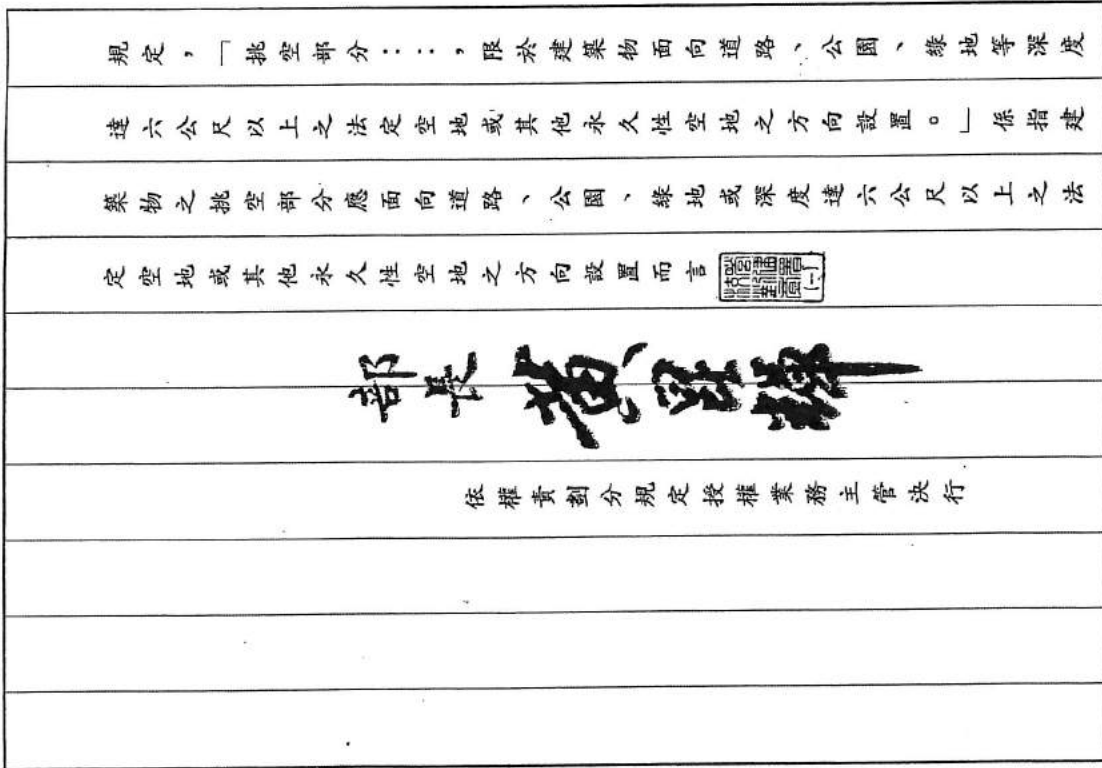 規定，「挑空部分：：，限於建築物面向道路、公園、綠地等深度
達六公尺以上之法定空地或其他永久性空地之方向設置。」係指建
築物之挑空部分應面向道路、公園、綠地或深度達六公尺以上之法
定空地或其他永久性空地之方向設置而言
部長 黃
依權責劃分規定授權業務主管決行